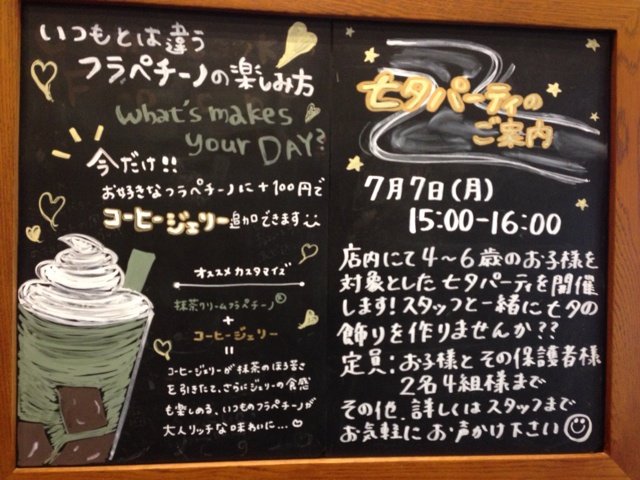 いつもとは違う
フラペチーノの楽しみ方
What's makes
your DAY?
今だけ!!
お好きなフラペチーノに+100円で
コーヒージェリー追加できます
オススメカスタマイズ
抹茶クリームフラペチーノ®
+
コーヒージェリー
=
コーヒージェリーが抹茶のほろ苦さ
を引きたて、さらにジェリーの食感
も楽しめる、いつものフラペチーノが
大人リッチな味わいに…♡
七夕パーティの
ご案内
7月7日(月)
15:00-16:00
店内にて4〜6歳のお子様を
対象とした七夕パーティを開催
します!スタッフと一緒に七夕の
飾りを作りませんか??
定員:お子様とその保護者様
2名4組様まで
その他、詳しくはスタッフまで
お気軽にお声かけ下さい☺